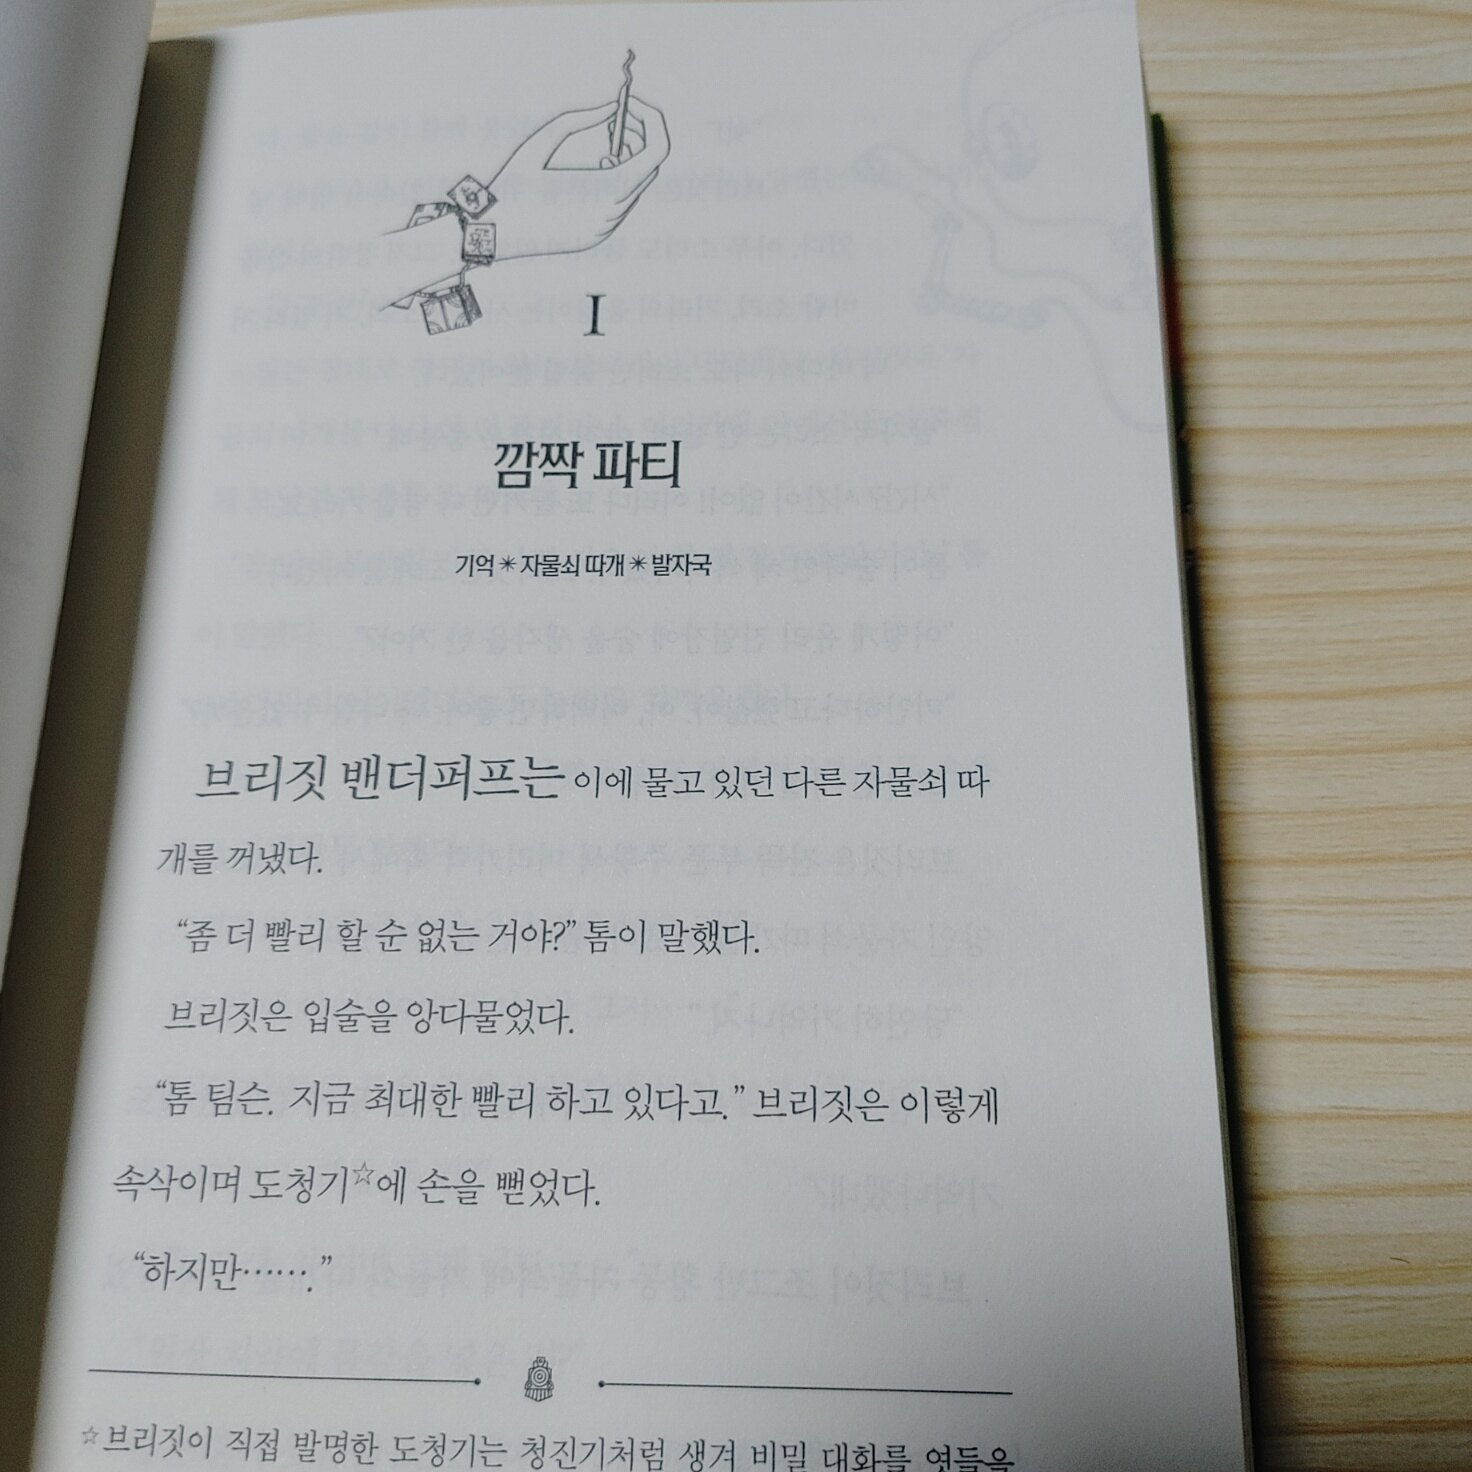 I
깜짝 파티
기억 * 자물쇠 따개 * 발자국
브리짓 밴더퍼프는 이에 물고 있던 다른 자물쇠 따
개를 꺼냈다.
“좀 더 빨리 할 순 없는 거야?” 톰이 말했다.
브리짓은 입술을 앙다물었다.
“톰 팀슨. 지금 최대한 빨리 하고 있다고.” 브리짓은 이렇게
속삭이며 도청기☆에 손을 뻗었다.
“하지만…….”
☆브리짓이 직접 발명한 도청기는 청진기처럼 생겨 비밀 대화를 엿들을